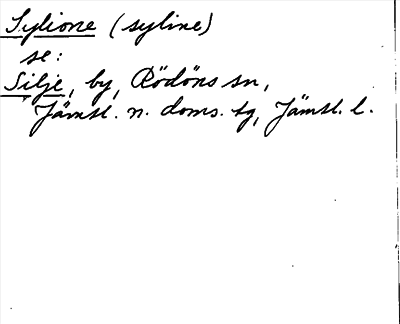 Sylione (syline)
se:
Silje, by, Rödöns sn,
Jämtl. n. doms. tg, Jämtl. l.